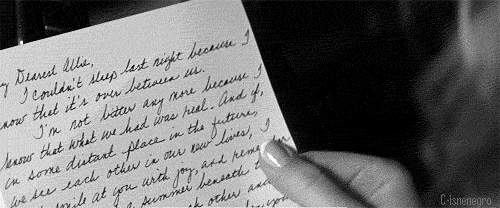 y Dearest Allie,
I couldn't sleep last night because I
know that it's over between us.
I'm not bitter any more because I
know that what we had was real. And if,
in some distant place in the future,
we see each other in our new lives, I
smile at you with joy and remember
a summer beneath
each other and
you
C-Isnenegro